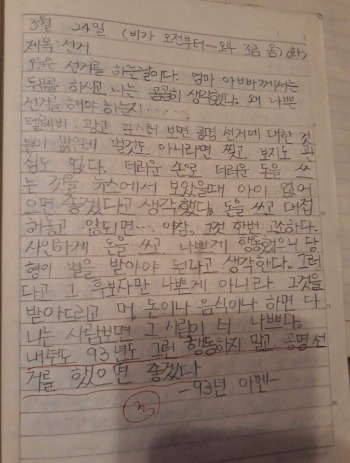 3월 24일 (비가 오전부터~오후 조금 옴) (화)
제목: 선거.
오늘은 선거를 하는날이다. 엄마 아빠께서는
투표를 하시고 나는 곰곰히 생각했다. 왜 나쁜
선거를 해야 하는지·····.
텔레비. 광고 포스터 보면 공명 선거에 대한 것
들이 많은데 별것도 아니라면 찢고, 보지도 관
심도 없다. 더러운 손으로 더러운 돈을 쓰
는 것을 뉴스에서 보았을때 아이 없어
으면 좋겠다고 생각했다. 돈을 쓰고 대접
하고 안되면··· 야참, 그것 한번 고소하다.
사악하게 돈을 쓰고 나쁘게 행동했으니 당
형이 벌을 받아야 된다고 생각한다. 그러
다고 그 후보자만 나쁘게 아니라 그것을
받아드리고 머 돈이나 음식이나 하면 다
나는 사람보면 그 사람이 더 나쁘다.
내년도 93년도 그런 행동하지 말고 공명 선
거를 했으면 좋겠다
-93년 아멘-